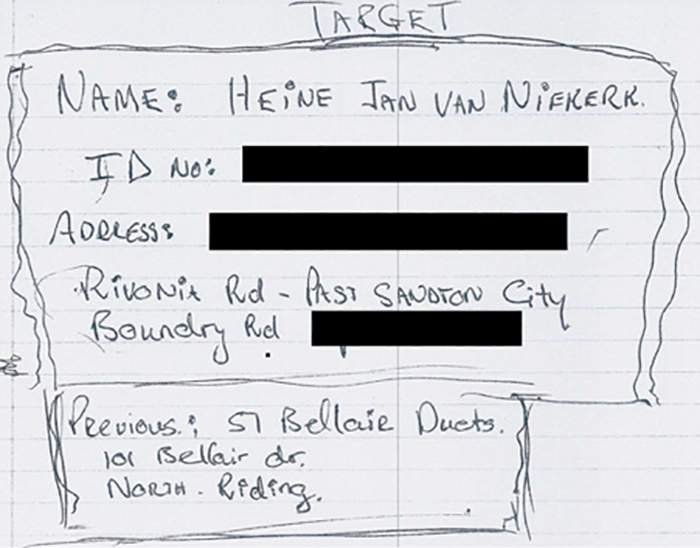 TARGET
NAME: HEINE JAN VAN NIEKERK.
ID NO:
ADDRESS:
RIVONIA Rd - PAST SANDTON City
Boundry Rd
PREVIOUS.: 57 Bellair Ducts.
101 Bellair dr.
NORTH-Riding.